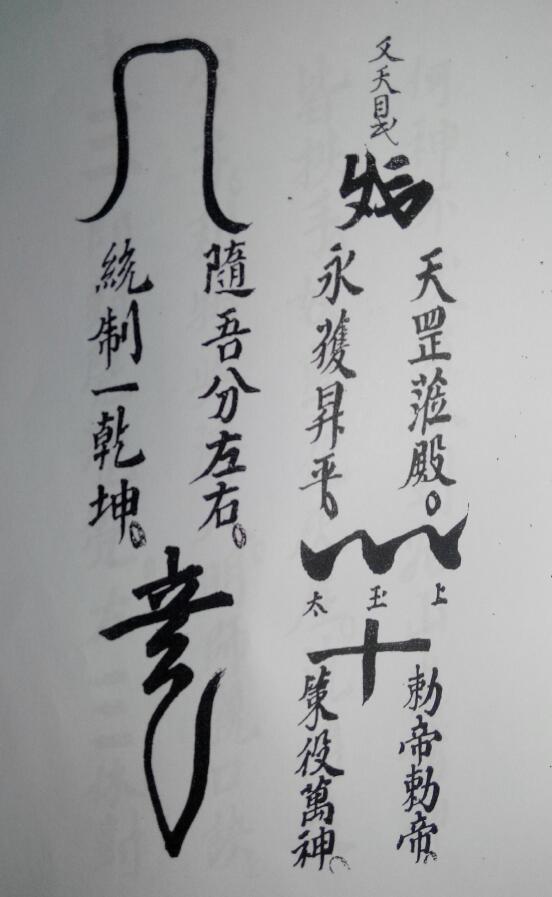 天罡蒞殿。
永獲昇平。
上
玉
太
十
勅帝勅帝。
策役萬神。
隨吾分左右。
統制一乾坤。